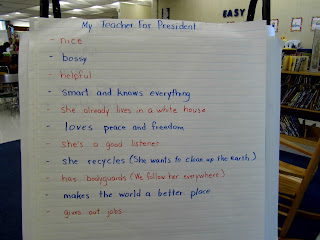 EASY
My Teacher For President
- nice
- bossy
- helpful
- smart and knows everything
- she already lives in a white house
- loves peace and freedom
- she's a good listener
- she recycles (She wants to clean up the Earth)
- has bodyguards (We follow her everywhere)
- makes the world a better place
- gives out jobs